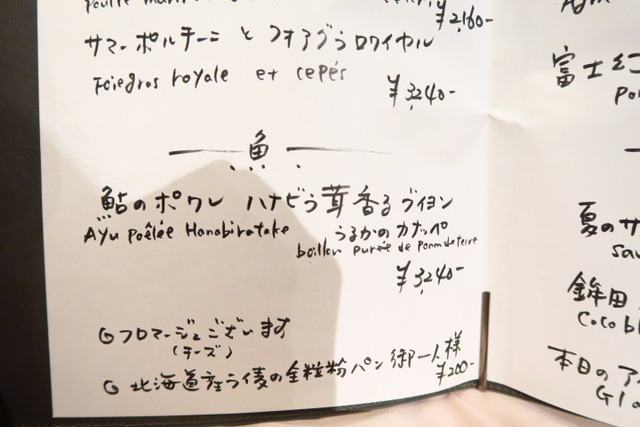 ¥2,160-
サマーポルチーニ と フォアグラロワイヤル
Foiegros royale et cepés
¥3,240-
魚
鮎のポワレ ハナビラ茸香るブイヨン
Ayu poêlée Hanabiratake うるかのカナッペ
boillon purée de pomm de terre
¥3,240-
フロマージュございます
(チーズ)
北海道産 の全粒粉パン 御一人様
¥200-
富士
夏のサ
鉾田
Coco bl
本日のア
Gla